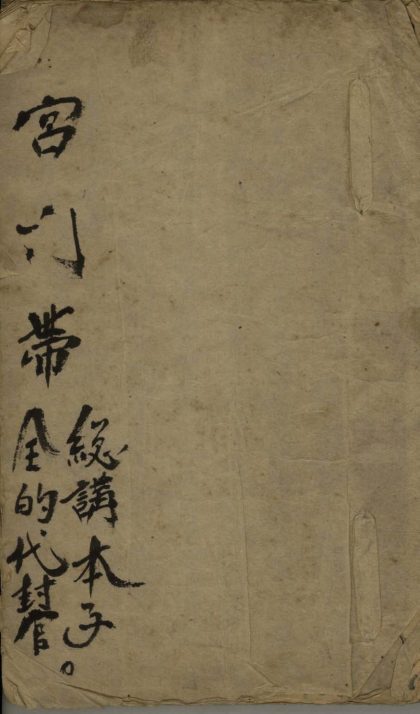 宮门帶
総講本子
全的代封官。